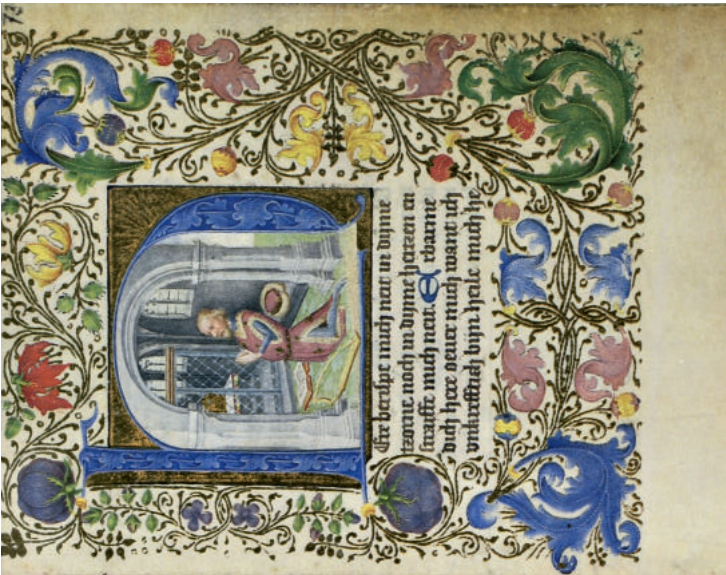 HEre beruspe mich neit in dyme
tzorne noch in dyme heitzen en
straffe mich neit. Erbarme
dich here oeuer mich want ich
vnkrefftich byn heile mich he